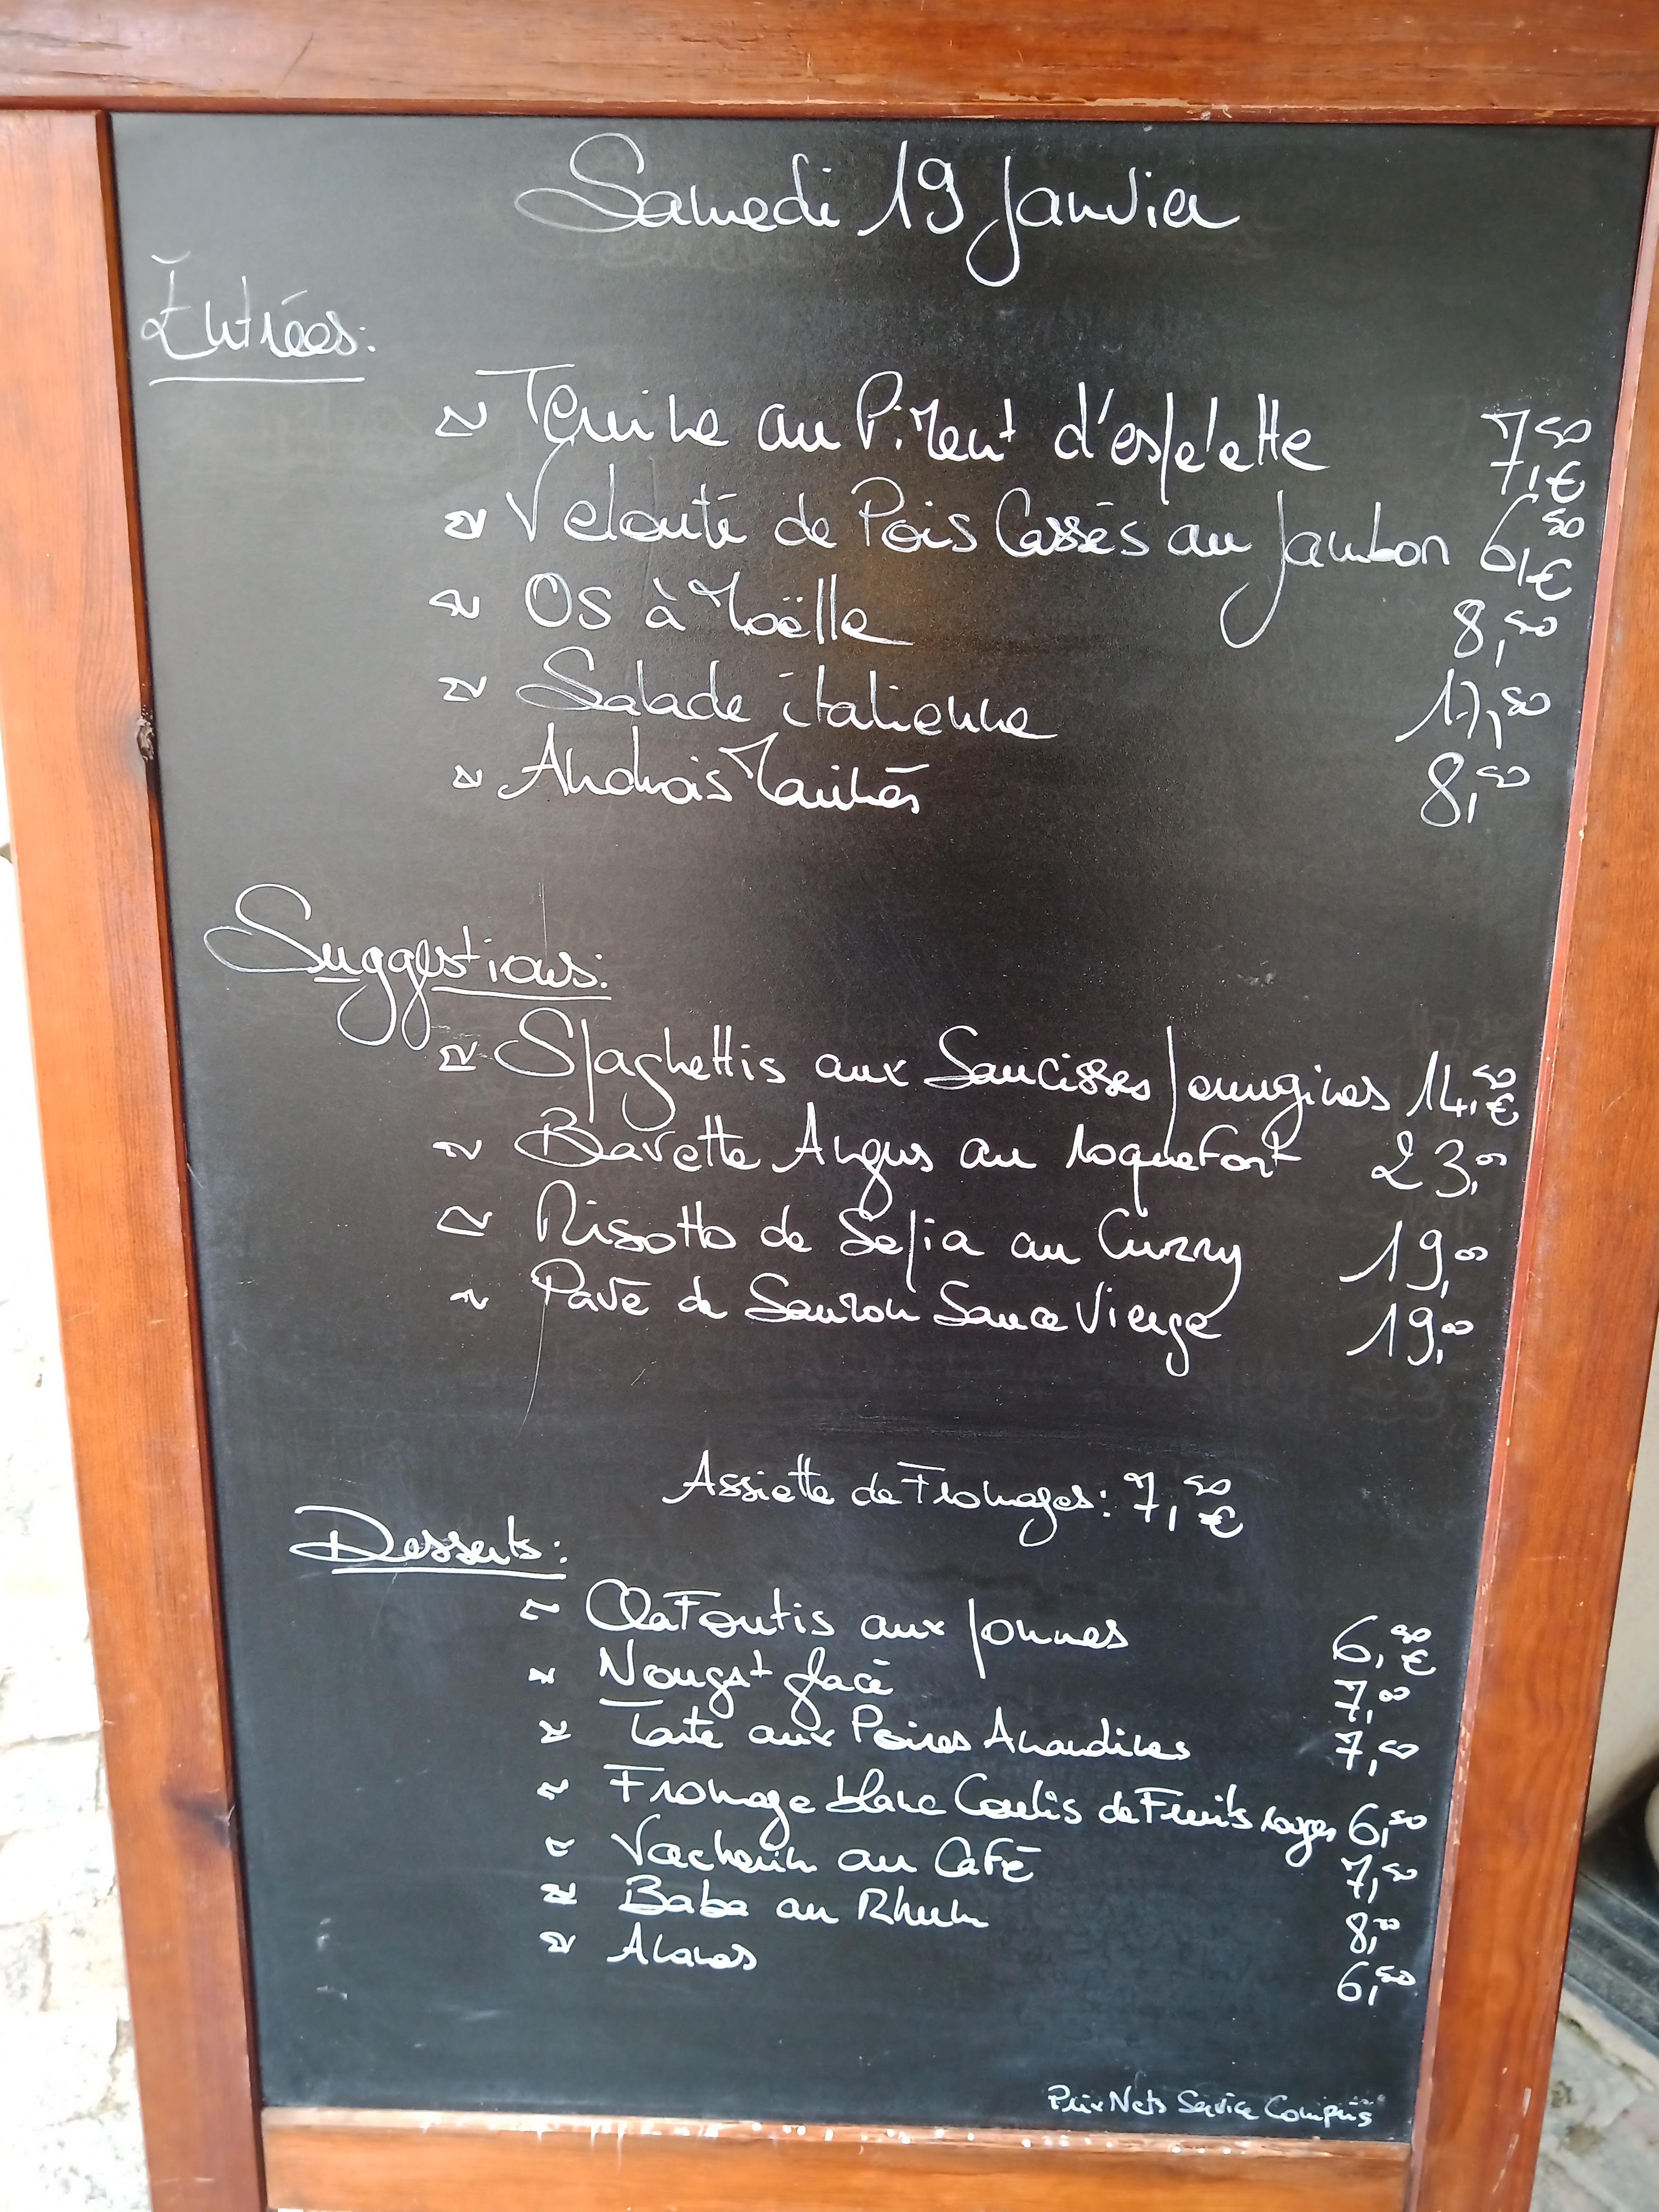 Samedi 19 Janvier
Entrées:
~ Terrine au Piment d'espelette 7,50€
~ Velouté de Pois Cassés au Jambon 6,50€
~ Os à Moëlle 8,50
~ Salade italienne 17,50
~ Anchois Marinés 8,50
Suggestions:
~ Spaghettis aux Saucisses perugines 14,50€
~ Bavette Angus au roquefort 23,00
~ Risotto de Sepia au Curry 19,00
~ Pavé de Saumon Sauce Vierge 19,00
Assiette de Fromages: 7,50€
Desserts:
~ Clafoutis aux pommes 6,50€
~ Nougat glacé 7,00
~ Tarte aux Poires Amandines 7,50
~ Fromage blanc Coulis de Fruits rouges 6,50
~ Vacherin au Café 7,50
~ Baba au Rhum
~ Ananas 6,50
Prix Nets Service Compris